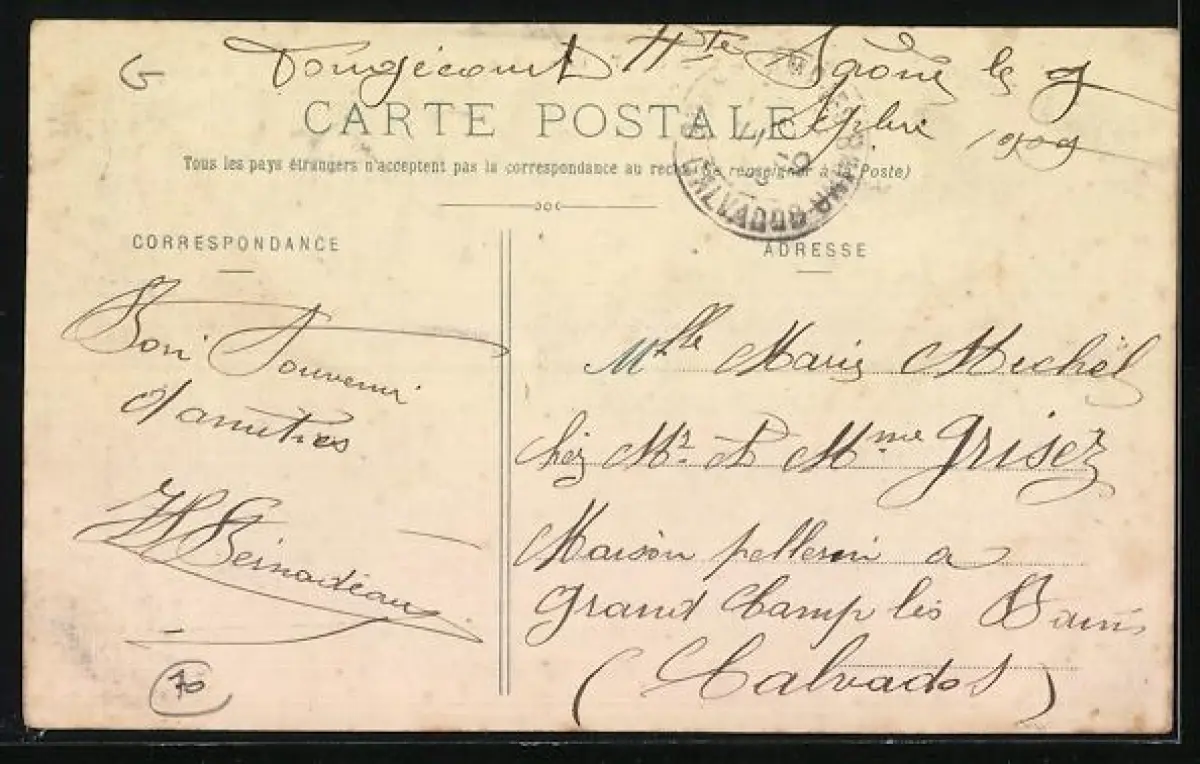 G
Vougécourt Hte Saône le 9
CARTE POSTALE
Sepbre 1909
Tous les pays étrangers n'acceptent pas la correspondance au recto (Se renseigner à la Poste)
CALVADOS
CORRESPONDANCE
ADRESSE
Bon Souvenir
d'amitiés
Bernadeau
70
Mlle Marie Michel
chez Mr et Mme Grisez
Maison pellerin a
Grand Camp les Bains
(Calvados)